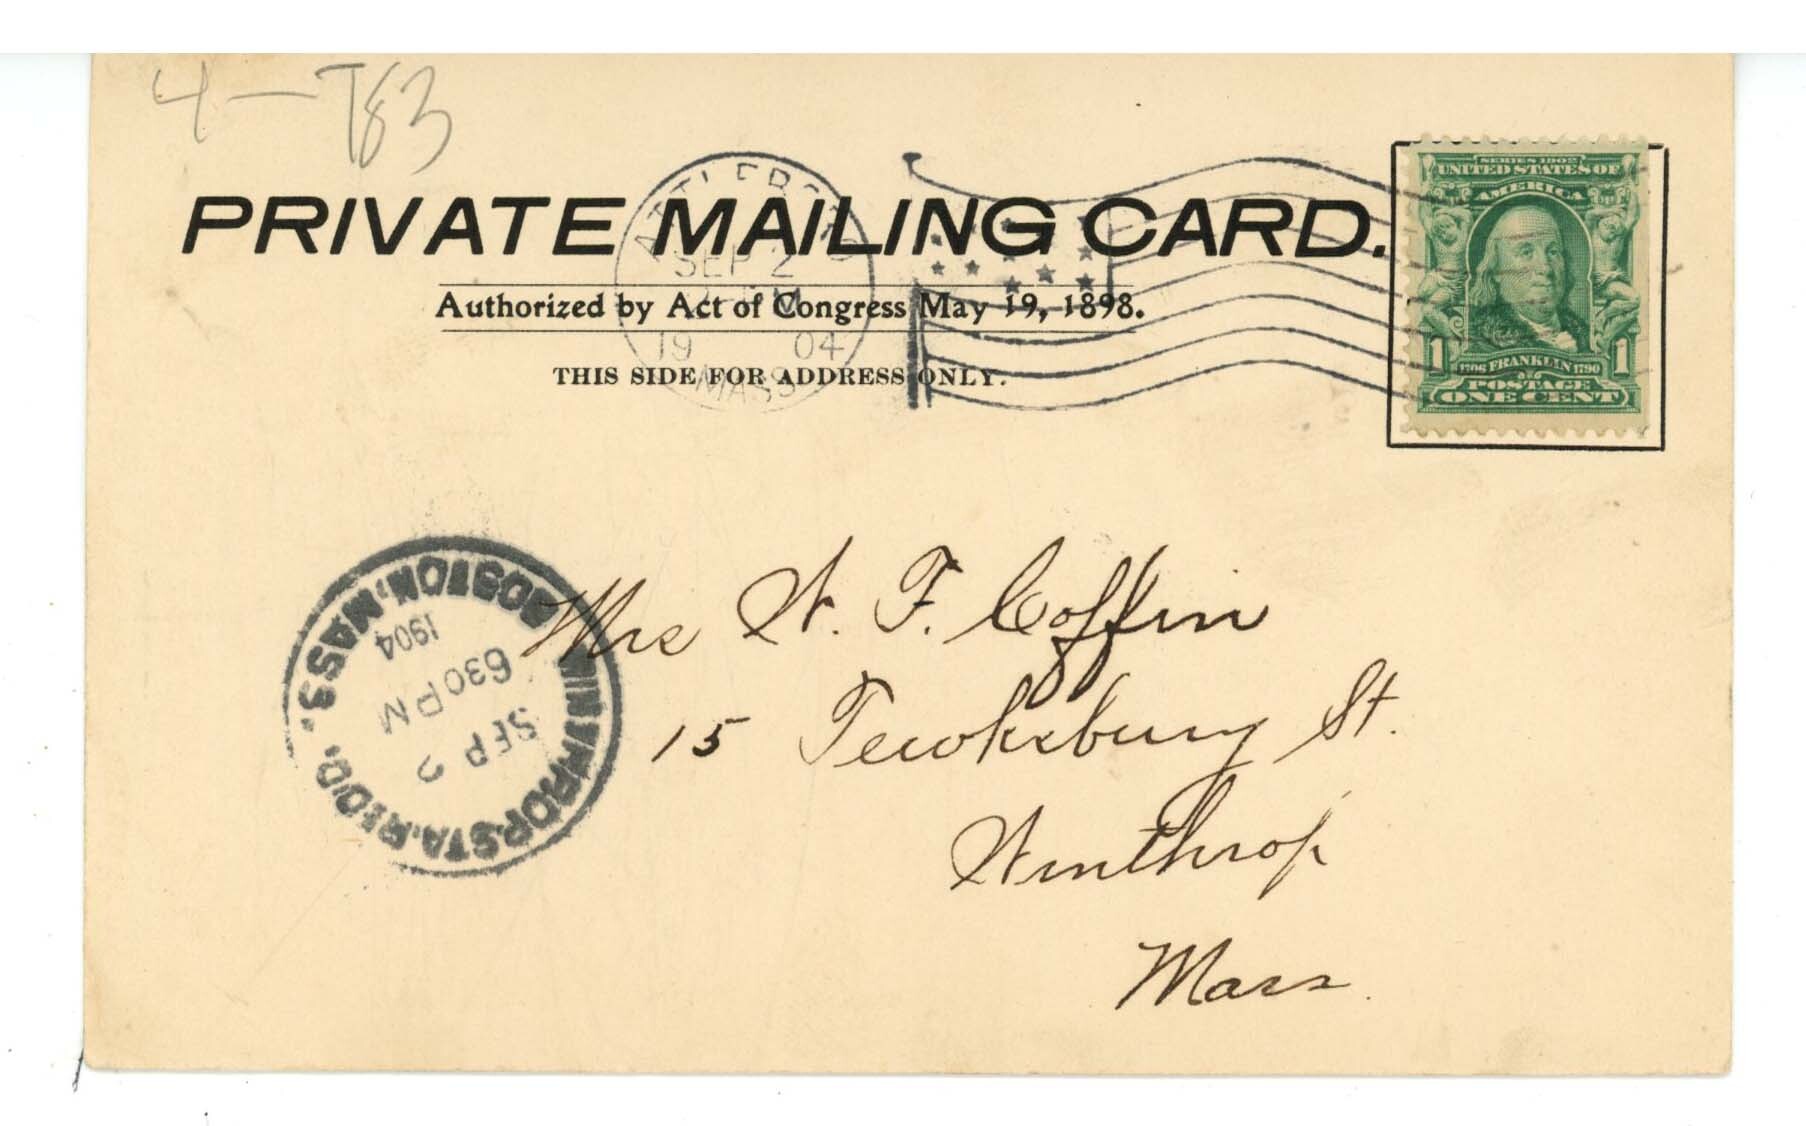 4 — T83
PRIVATE MAILING CARD.
Authorized by Act of Congress May 19, 1898.
THIS SIDE FOR ADDRESS ONLY.
ATTLEBORO
SEP 2
PM
1904
MASS
SERIES 1902
UNITED STATES OF
AMERICA
1 1
1706 FRANKLIN 1790
POSTAGE
ONE CENT
BOSTON, MASS.
WINTHROP STA. REC'D.
SEP 2
630 PM
1904
Mrs W. F. Coffin
15 Tewksbury St.
Winthrop
Mass.